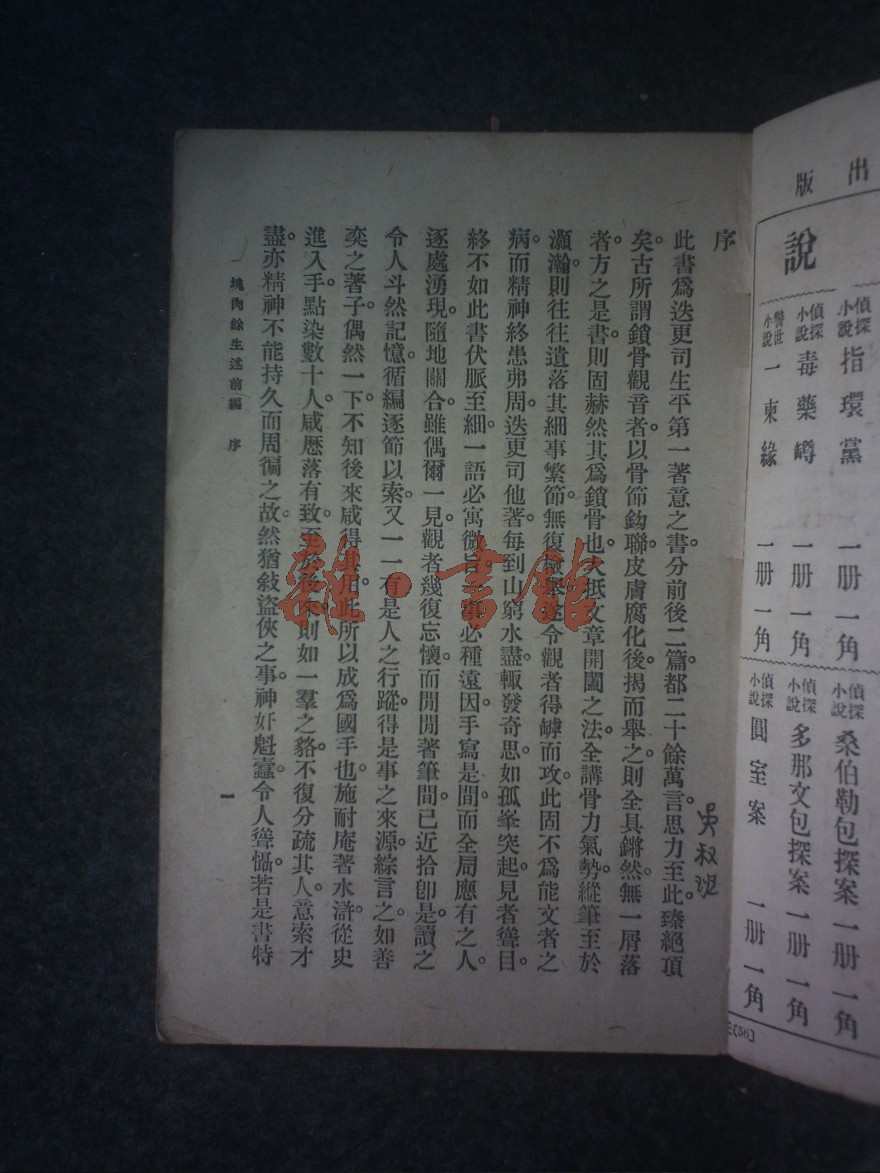 序
此書爲迭更司生平第一著意之書分前後二篇都二十餘萬言思力至此。臻絕頂
矣。古所謂鎖骨觀音者以骨節鈎聯皮膚腐化後揭而舉之則全具鏘然無一屑落
者。方之是書則固赫然其爲鎖骨也。大抵文章開闔之法。全講骨力氣勢。縱筆至於
灝瀚。則往往遺落其細事繁節。無復檢舉。遂令觀者得罅而攻。此固不爲能文者之
病。而精神終患弗周。迭更司他著。每到山窮水盡。輒發奇思。如孤峯突起。見者聳目。
終不如此書伏脈至細。一語必寓微旨。一事必種遠因。手寫是間。而全局應有之人。
逐處湧現。隨地關合。雖偶爾一見。觀者幾復忘懷。而閒閒著筆間。已近拾卽是。讀之
令人斗然記憶。循編逐節以索。又一一有是人之行蹤。得是事之來源。綜言之。如善
奕之著子。偶然一下。不知後來咸得其用。此所以成爲國手也。施耐庵著水滸。從史
進入手。點染數十人。咸歷落有致。至於後來則如一羣之貉。不復分疏其人。意索才
盡。亦精神不能持久而周徧之故。然猶敍盜俠之事。神奸魁蠹。令人聳慴。若是書特
塊肉餘生述前編 序
一
吳叔班
出版
說
偵探小說 指環黨 一册 一角
偵探小說 毒藥罇 一册 一角
警世小說 一柬緣 一册 一角
偵探小說 桑伯勒包探案 一册 一角
偵探小說 多那文包探案 一册 一角
偵探小說 圓室案 一册 一角
[56]
雜·書館